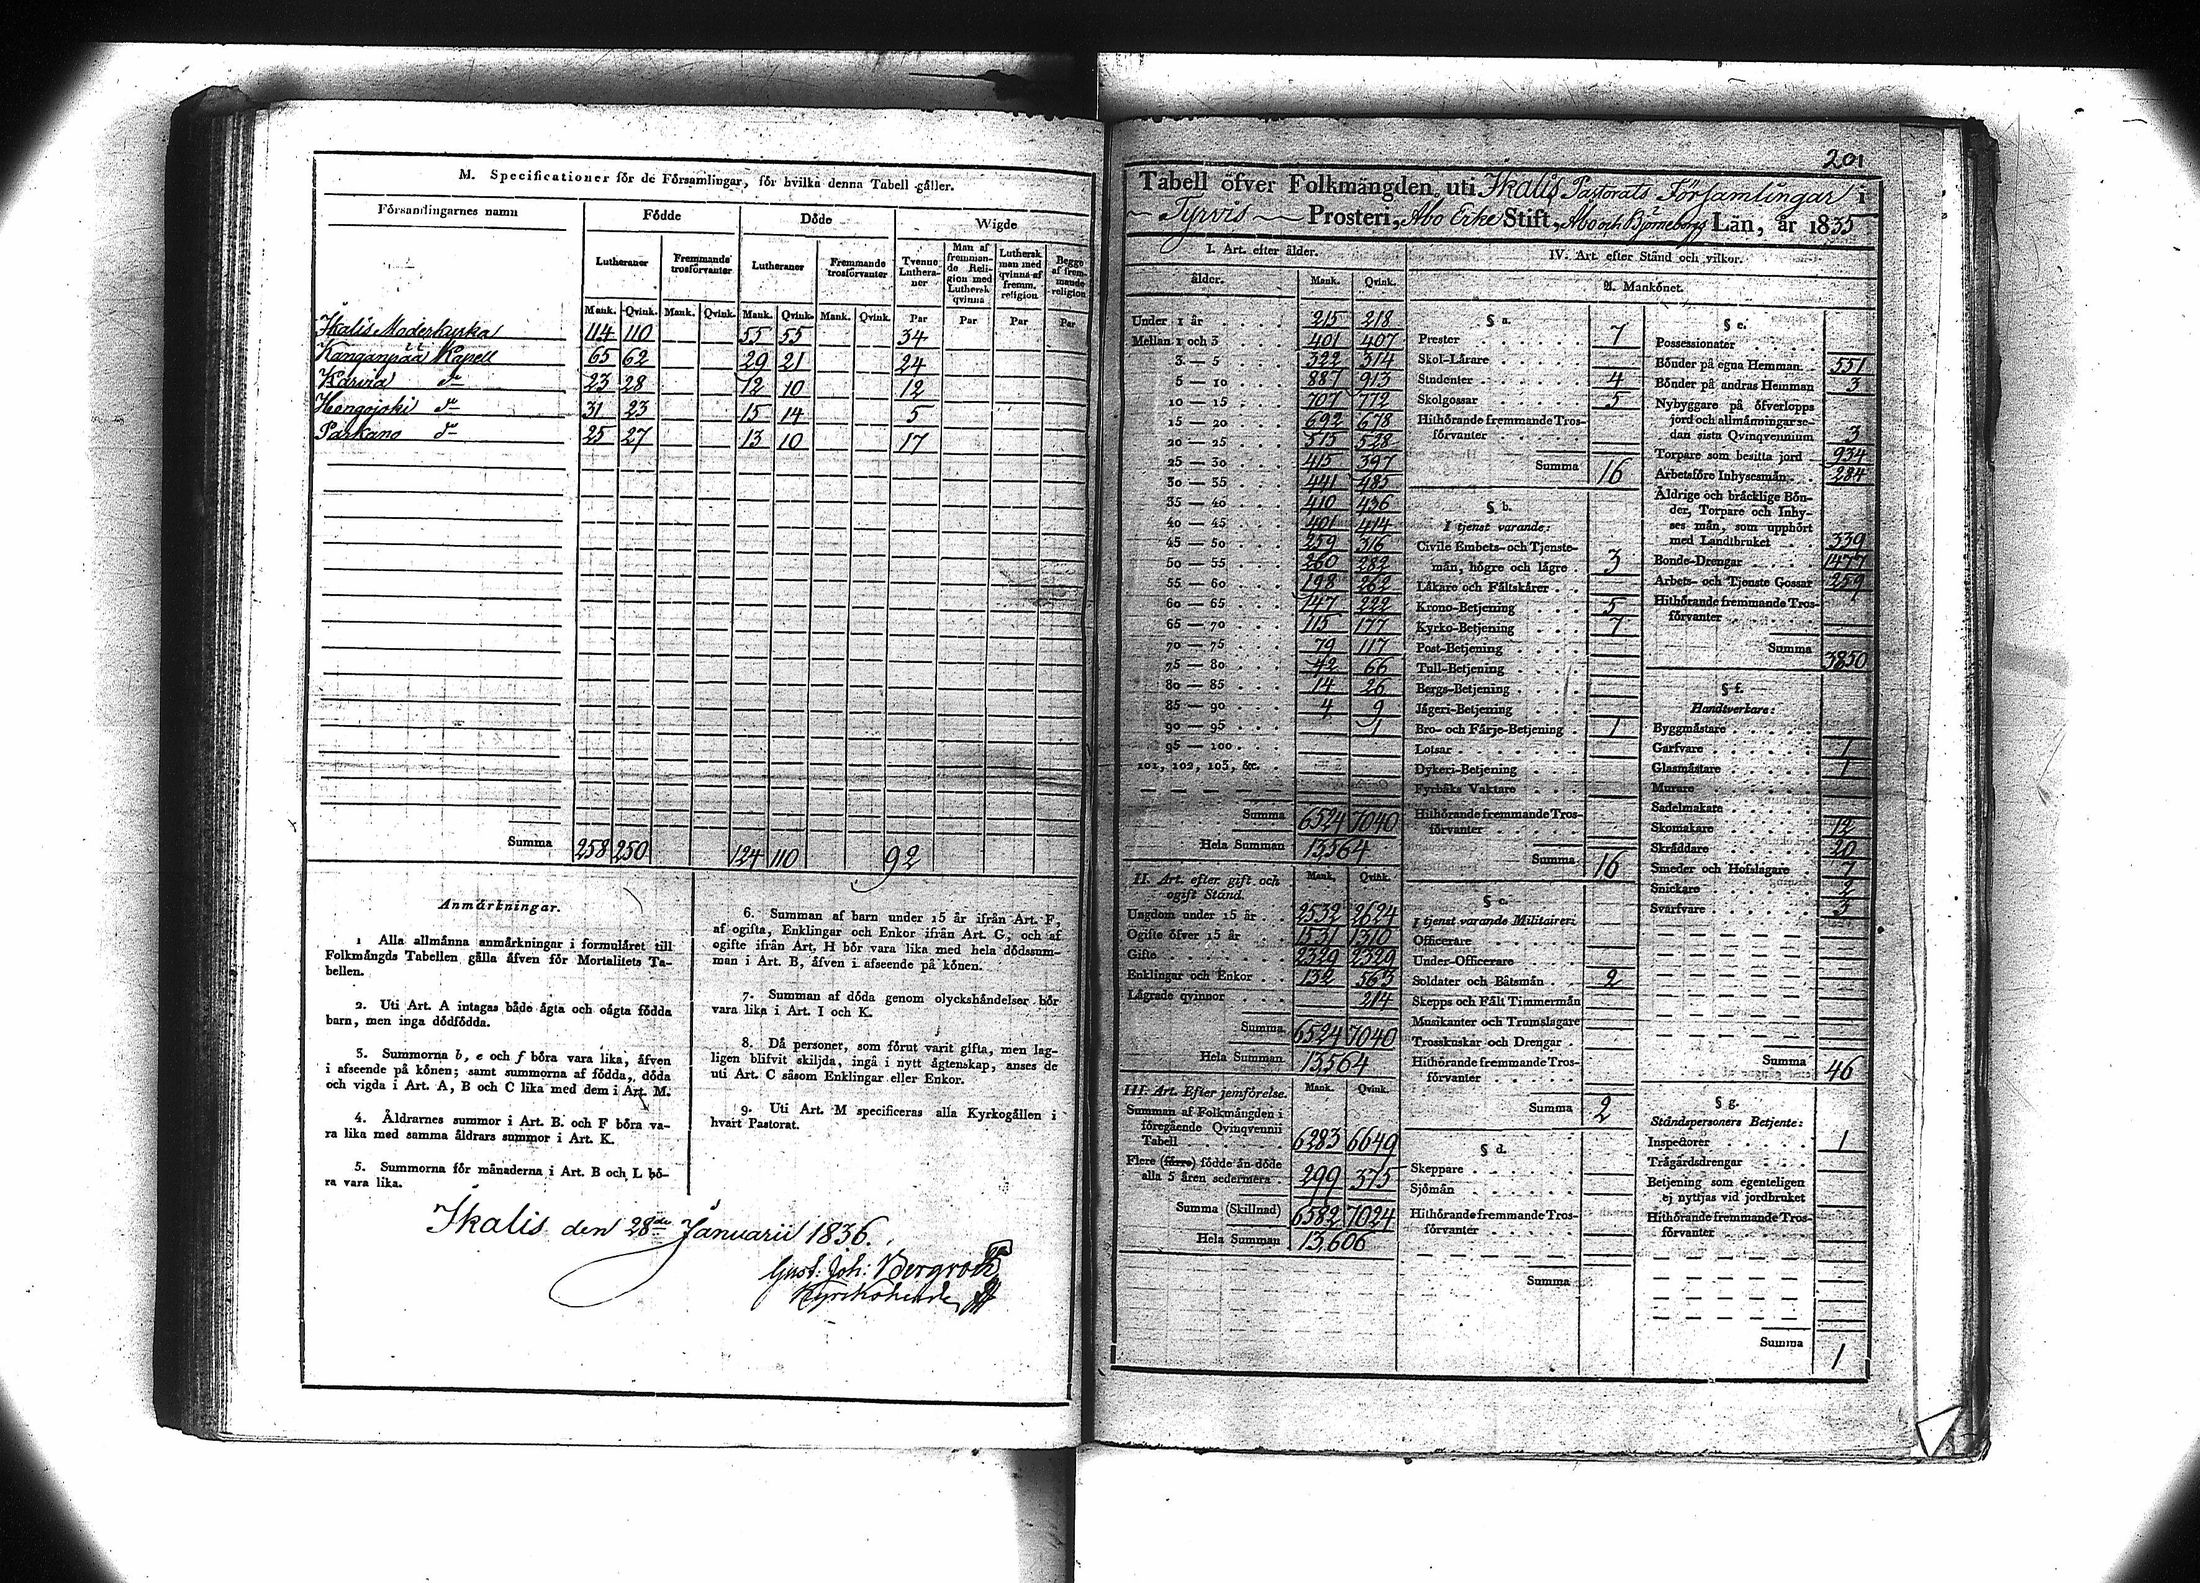 M. Specificationer för de Församlingar, för hvilka denna Tabell gäller.
Församlingarnes namn Födde Döde Wigde
Lutheraner Fremmande trosförvanter Lutheraner Fremmande trosförvanter Tvenne Lutheraner Man af fremmande Religion med Luthersk qvinna Luthersk man med qvinna af fremm. religion Begge af fremmande religion
Mank. Qvink. Mank. Qvink. Mank. Qvink. Mank. Qvink. Par Par Par Par
Ikalis Moderkyrka 114 110 55 55 34
Kanganpää Kapell 65 62 29 21 24
Karvia do 23 28 12 10 12
Hongojoki do 31 23 15 14 5
Parkano do 25 27 13 10 17
Summa 258 250 124 110 92
Anmärkningar.
1 Alla allmänna anmärkningar i formuläret till
Folkmängds Tabellen gälla äfven för Mortalitets Ta-
bellen.
2. Uti Art. A intagas både ägta och oägta födda
barn, men inga dödfödda.
3. Summorna b, e och f böra vara lika, äfven
i afseende på könen; samt summorna af födda, döda
och vigda i Art. A, B och C lika med dem i Art. M.
4. Åldrarnes summor i Art. B. och F böra va-
ra lika med samma åldrars summor i Art. K.
5. Summorna för månaderna i Art. B och L bö-
ra vara lika.
6. Summan af barn under 15 år ifrån Art. F,
af ogifta, Enklingar och Enkor ifrån Art. G, och af
ogifte ifrån Art, H bör vara lika med hela dödssum-
man i Art. B, äfven i afseende på könen.
7. Summan af döda genom olyckshändelser bör
vara lika i Art. I och K.
8. Då personer, som förut varit gifta, men lag-
ligen blifvit skiljda, ingå i nytt ägtenskap, anses de
uti Art. C såsom Enklingar eller Enkor.
9. Uti Art. M specificeras alla Kyrkogällen i
hvart Pastorat.
Ikalis den 28de Januarii 1836.
Gust: Joh: Bergroth
Kyrkoherde
201
Tabell öfver Folkmängden uti Ikalis Pastorats Församlingar i
Tyrvis Prosteri, Åbo Erke Stift, Åbo och Björneborgs Län, år 1835
I. Art. efter ålder.
ålder. Mank. Qvink.
Under 1 år 215 218
Mellan 1 och 3 401 407
3 — 5 322 314
5 — 10 887 913
10 — 15 707 772
15 — 20 692 678
20 — 25 515 528
25 — 30 415 397
30 — 35 441 485
35 — 40 410 436
40 — 45 401 414
45 — 50 259 316
50 — 55 260 282
55 — 60 198 262
60 — 65 147 222
65 — 70 115 177
70 — 75 79 117
75 — 80 42 66
80 — 85 14 26
85 — 90 4 9
90 — 95 1
95 — 100
101, 102, 103, &c.
Summa 6524 7040
Hela Summan 13564
II. Art. efter gift och ogift Stånd. Mank. Qvink.
Ungdom under 15 år 2532 2624
Ogifte öfver 15 år 1531 1310
Gifte 2329 2329
Enklingar och Enkor 132 563
Lägrade qvinnor 214
Summa 6524 7040
Hela Summan 13564
III. Art. Efter jemförelse. Mank. Qvink.
Summan af Folkmängden i
föregående Qvinqvennii
Tabell 6283 6649
Flere (färre) födde än döde
alla 5 åren sedermera 299 375
Summa (Skillnad) 6582 7024
Hela Summan 13,606
IV. Art. efter Stånd och vilkor.
A. Mankönet.
§ a.
Prester 7
Skol-Lärare
Studenter 4
Skolgossar 5
Hithörande fremmande Tros-
förvanter
Summa 16
§ b.
I tjenst varande:
Civile Embets- och Tjenste-
män, högre och lägre 3
Läkare och Fältskärer
Krono-Betjening 5
Kyrko-Betjening 7
Post-Betjening
Tull-Betjening
Bergs-Betjening
Jägeri-Betjening
Bro- och Färje-Betjening 1
Lotsar
Dykeri-Betjening
Fyrbåks Vaktare
Hithörande fremmande Tros-
förvanter
Summa 16
§ c.
I tjenst varande Militairer:
Officerare
Under-Officerare
Soldater och Båtsmän 2
Skepps och Fält Timmermän
Musikanter och Trumslagare
Trosskuskar och Drengar
Hithörande fremmande Tros-
förvanter
Summa 2
§ d.
Skeppare
Sjömän
Hithörande fremmande Tros-
förvanter
Summa
§ e.
Possessionater
Bönder på egna Hemman 551
Bönder på andras Hemman 3
Nybyggare på öfverlopps
jord och allmänningar se-
dan sista Qvinqvennium 3
Torpare som besitta jord 934
Arbetsföre Inhysesmän 284
Åldrige och bräcklige Bön-
der, Torpare och Inhy-
ses män, som upphört
med Landtbruket 339
Bonde-Drengar 1477
Arbets- och Tjenste Gossar 259
Hithörande fremmande Tros-
förvanter
Summa 3850
§ f.
Handtverkare:
Byggmästare
Garfvare 1
Glasmästare 1
Murare
Sadelmakare
Skomakare 12
Skräddare 20
Smeder och Hofslagare 7
Snickare 2
Svarfvare 3
Summa 46
§ g.
Ståndspersoners Betjente:
Inspectorer 1
Trägårdsdrengar
Betjening som egenteligen
ej nyttjas vid jordbruket
Hithörande fremmande Tros-
förvanter
Summa 1